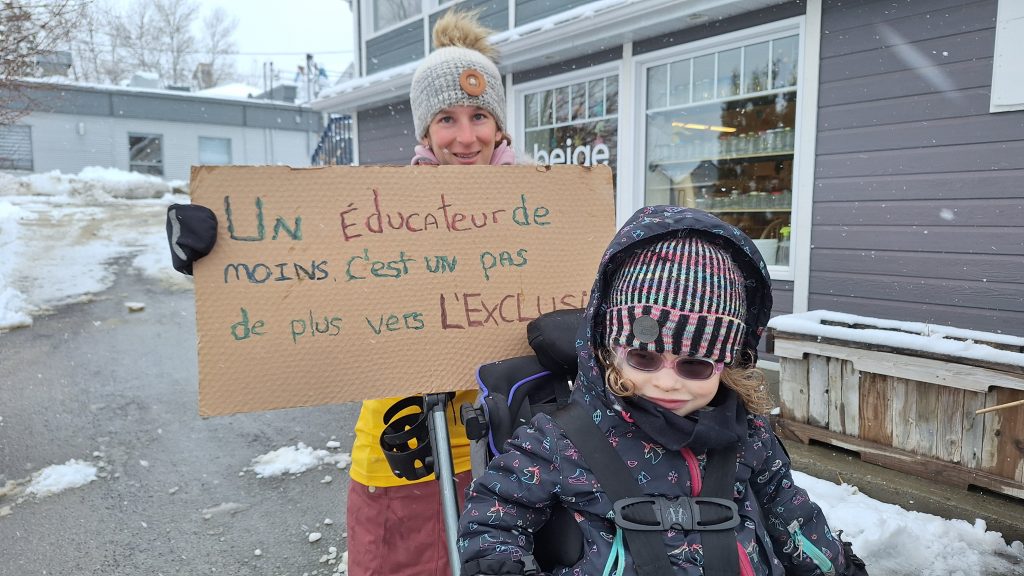 beige
Un Éducateur de
moins, c'est un pas
de plus vers L'EXCLUSI